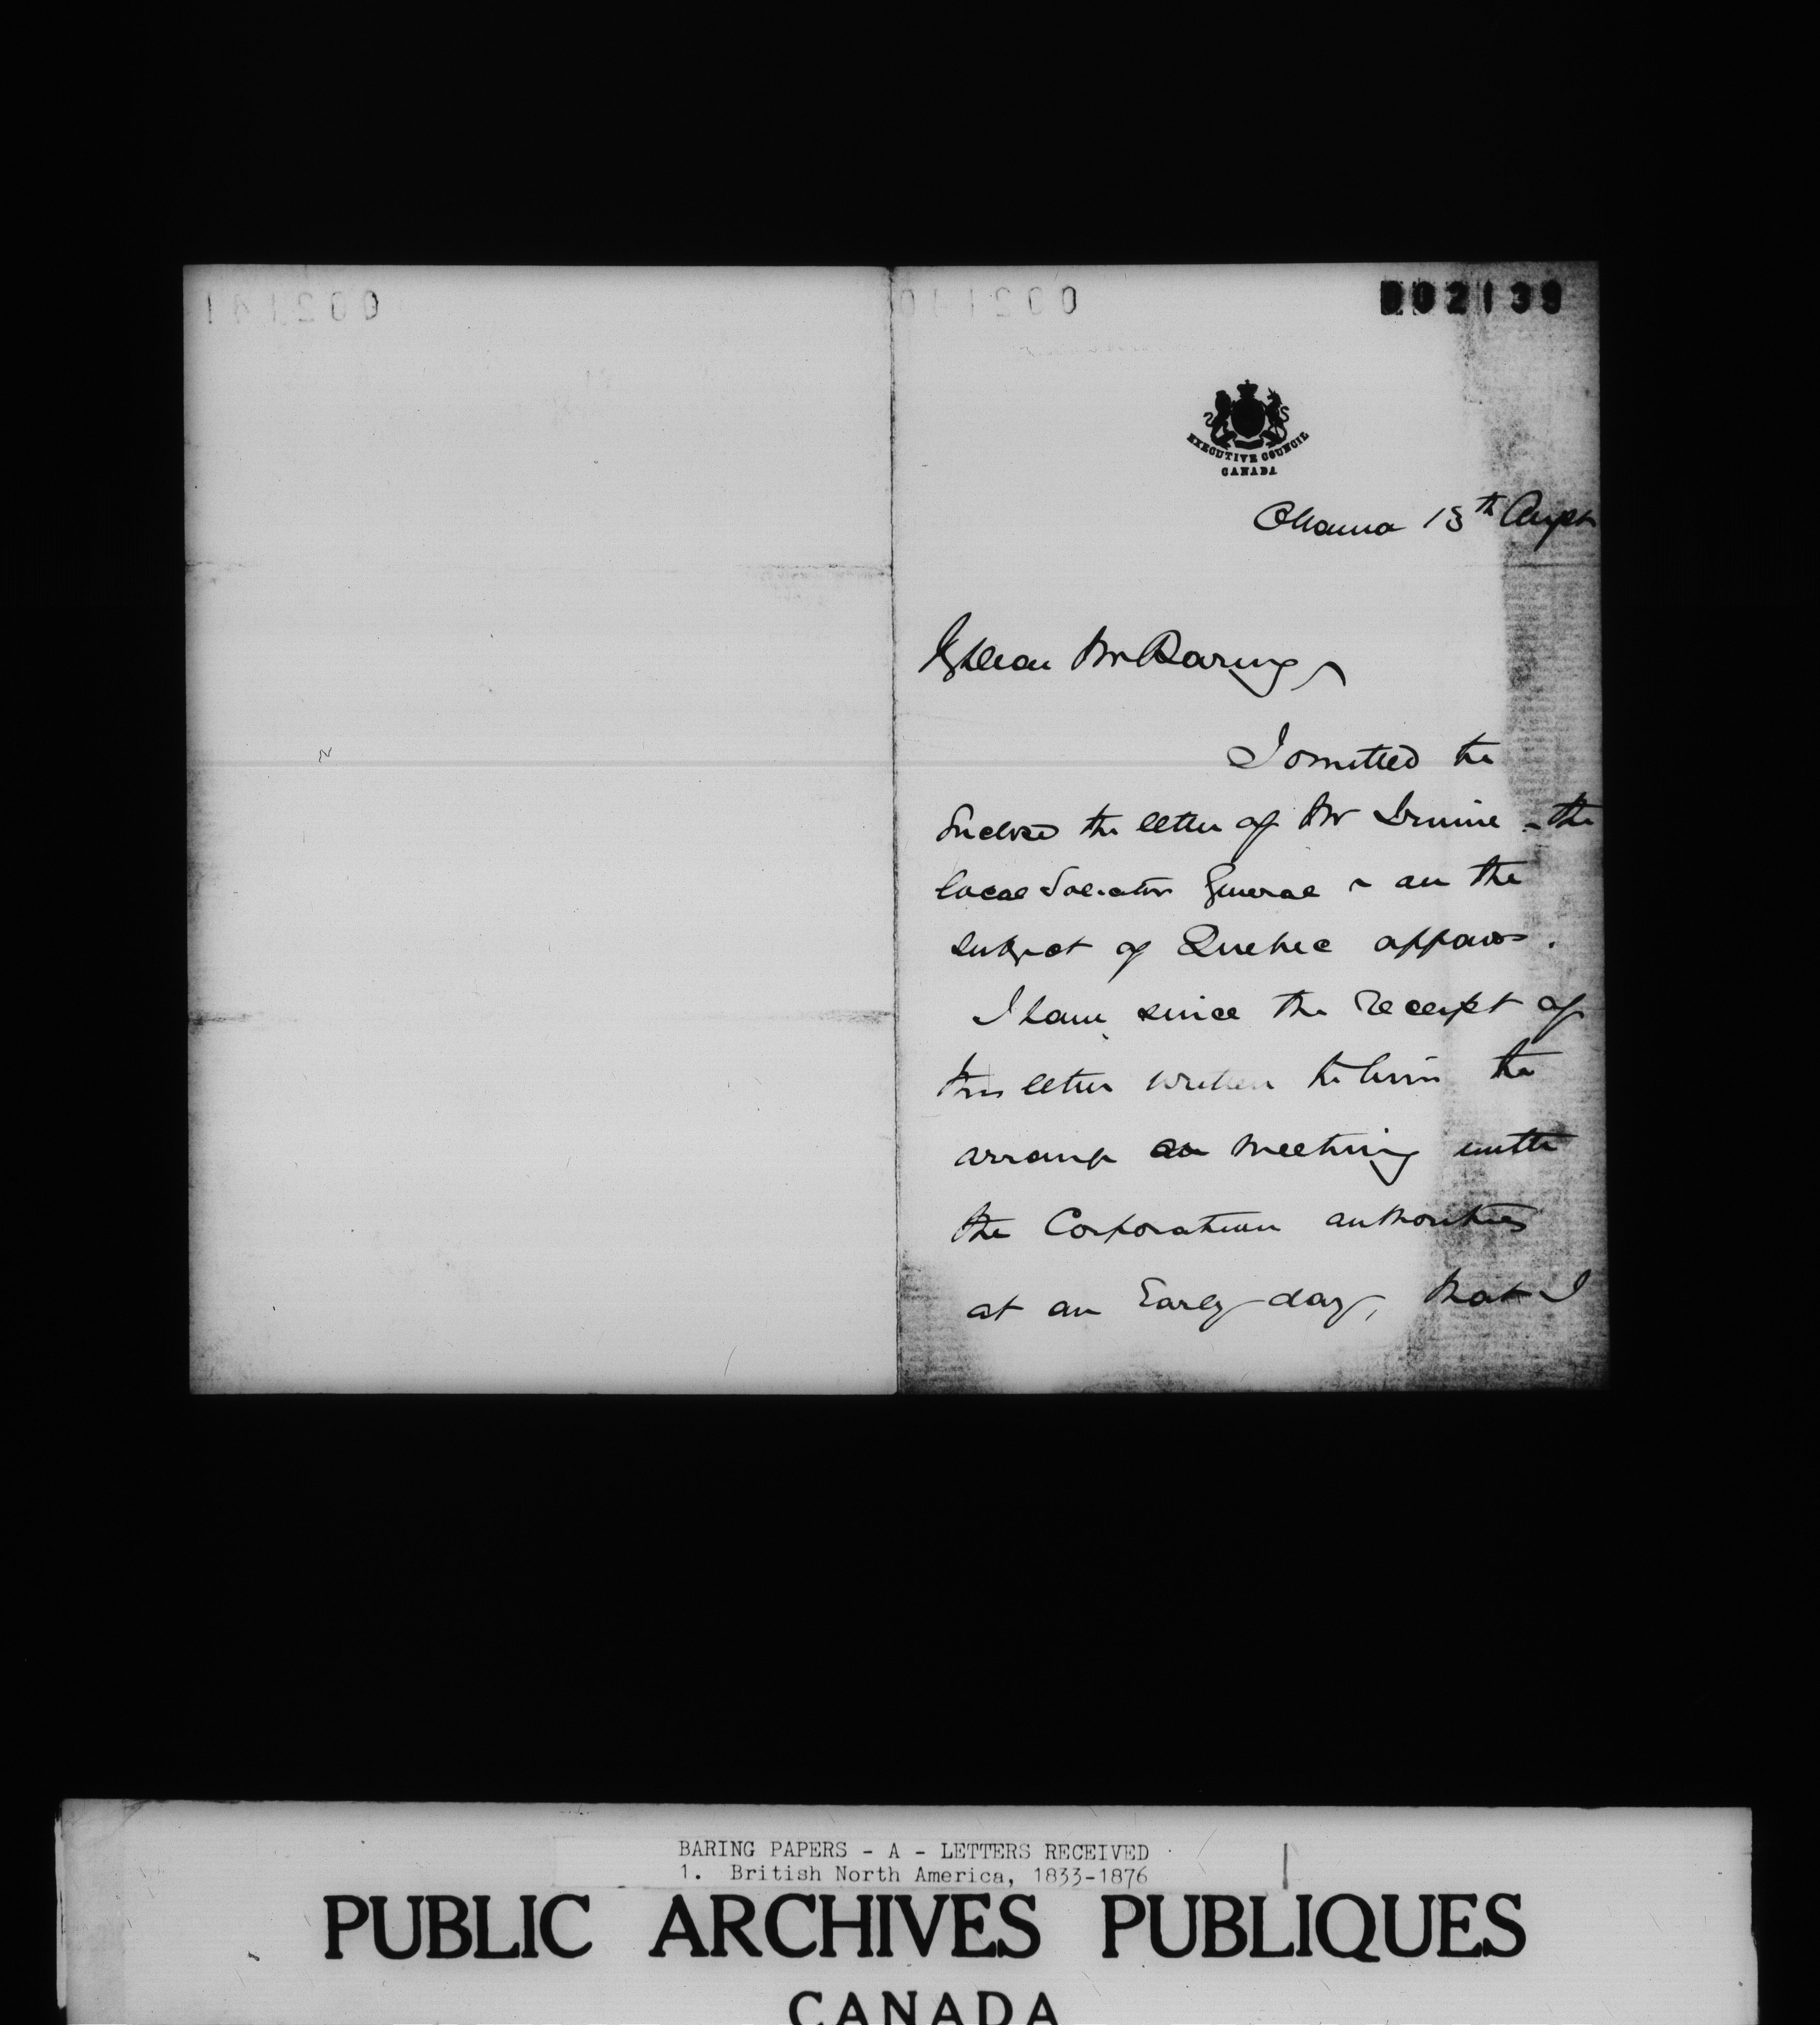 002139
EXECUTIVE COUNCIL
CANADA
Ottawa 13th Augst
My dear Mr Baring,
I omitted to
enclose the letter of Mr Irvine - the
local Solicitor General - on the
subject of Quebec affairs.
I have since the receipt of
this letter written to him to
arrange a meeting with
the Corporation authorities
at an Early day, that I
BARING PAPERS - A - LETTERS RECEIVED
1. British North America, 1833-1876
PUBLIC ARCHIVES PUBLIQUES
CANADA